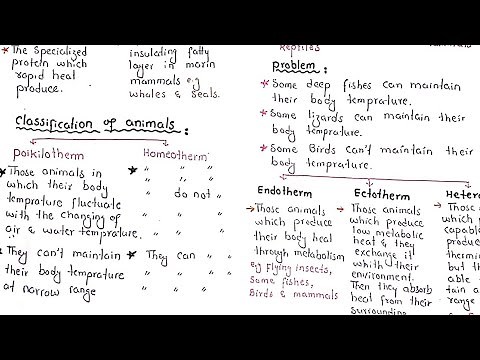 * The specialized
protein which
rapid heat
produce.
insulating fatty
layer in marin
mammals e.g
whales & seals.
Classification of animals :
Poikilotherm
Homeotherm
* Those animals in
which their body
temprature fluctuate
with the changing of
air & water temprature.
* " "
" "
" do not "
" "
" "
* They can't maintain
their body temprature
at narrow range
* They can "
" "
" "
Reptiles
Problem :
* Some deep fishes can maintain
their body temprature.
* Some lizards can maintain their
body temprature.
* Some Birds can't maintain their
body temprature.
Endotherm
→ Those animals
which produce
their body heat
through metabolism
eg Flying insects,
Some fishes,
Birds & mammals
Ectotherm
Those animals
which produce
low metabolic
heat & they
exchange it
whith their
environment.
Then they absorb
heat from their
surrounding
Heter
→ Those
which
capab
produ
thermi
but th
able
tain
an a
range